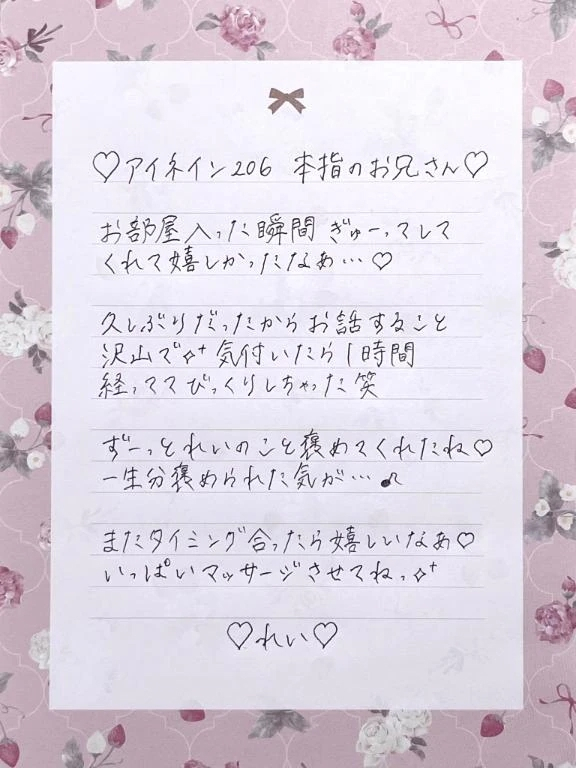 ♡アイネイン206 本指のお兄さん♡
お部屋入った瞬間 ぎゅーってして
くれて嬉しかったなぁ…♡
久しぶりだったからお話すること
沢山で✧⁺ 気付いたら1時間
経っててびっくりしちゃった笑
ずーっとれいのこと褒めてくれたね♡
一生分褒められた気が…♪
またタイミング合ったら嬉しいなぁ♡
いっぱいマッサージさせてねっ✧⁺
♡れい♡